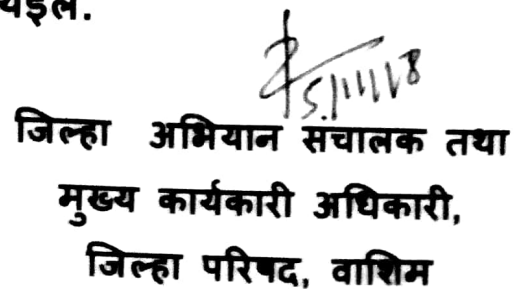 येईल.
5/11/18
जिल्हा अभियान संचालक तथा
मुख्य कार्यकारी अधिकारी,
जिल्हा परिषद, वाशिम